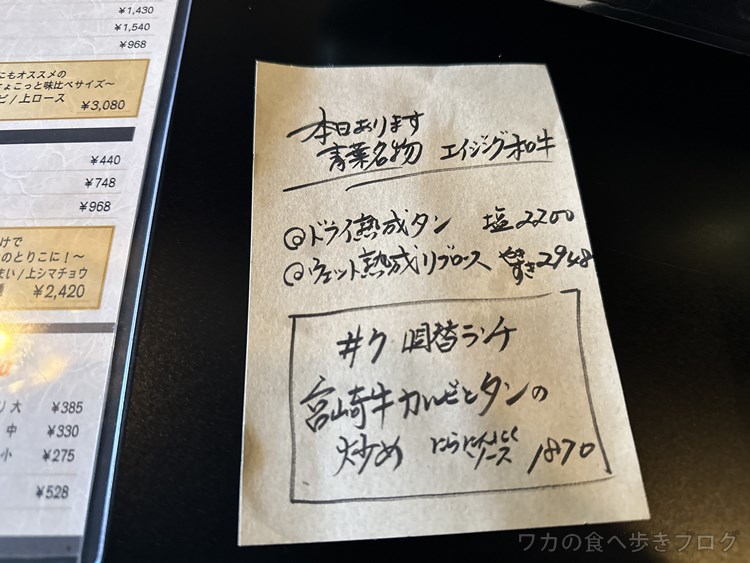 ¥1,430
¥1,540
¥968
にもオススメの
ちょこっと味比べサイズ～
ビ / 上ロース ¥3,080
¥440
¥748
¥968
けで
のとりこに！～
まい / 上シマチョウ
¥2,420
リ 大 ¥385
中 ¥330
小 ¥275
¥528
本日あります
青葉名物 エイジング和牛
@ドライ熟成タン 塩2200
@ウェット熟成リブロース やきすき2948
#ク 週替ランチ
宮崎牛カルビとタンの
炒め にらにんにくソース 1870
ワカの食べ歩きブログ